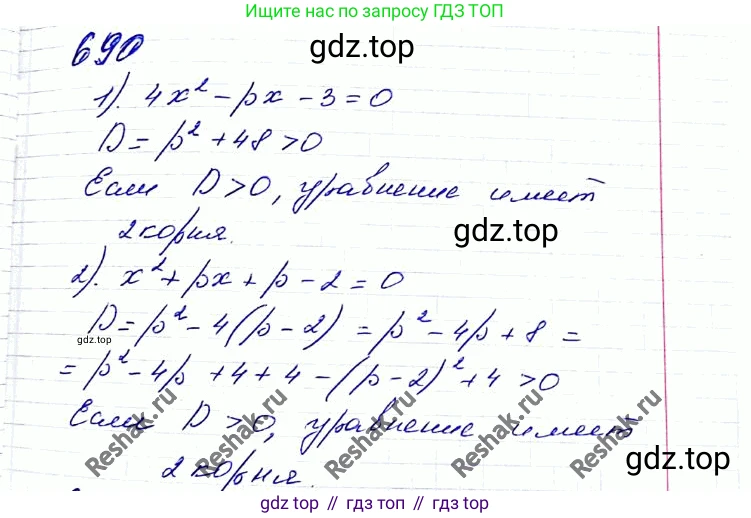 Ищи нас на номер решения по запросу ГДЗ ТОП
690
gdz.top
1). 4x² - px - 3 = 0
D = p² + 48 > 0
Если D > 0, уравнение имеет
2 корня.
gdz.top
2). x² + px + p - 2 = 0
D = p² - 4(p - 2) = p² - 4p + 8 =
gdz.top
= p² - 4p + 4 + 4 - (p - 2)² + 4 > 0
Если D > 0, уравнение имеет
Reshak.ru Reshak.ru Reshak.ru
2 корня.
gdz.top
gdz top // гдз топ // gdz.top // гдз.топ